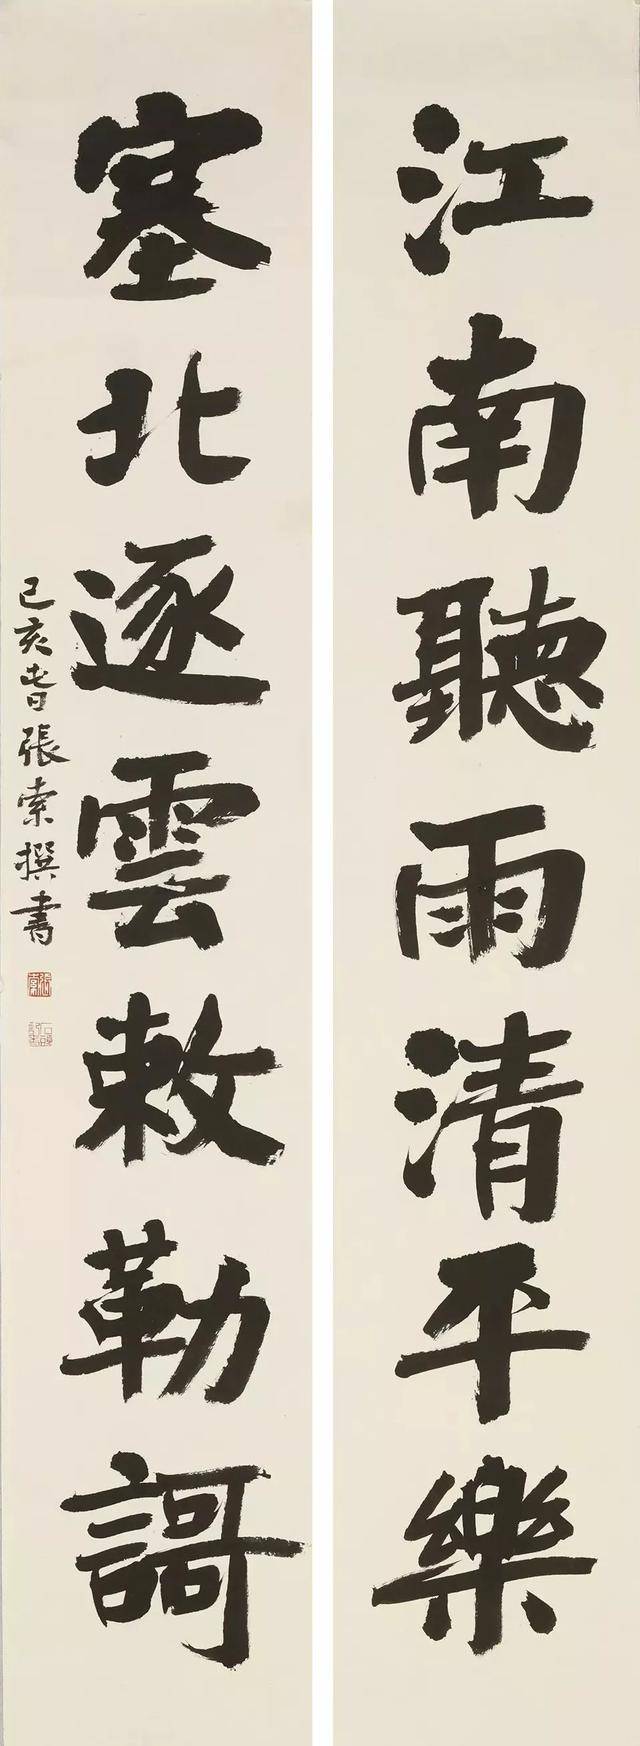 江南聽雨清平樂
塞北逐雲敕勒謌
己亥旾張索撰書